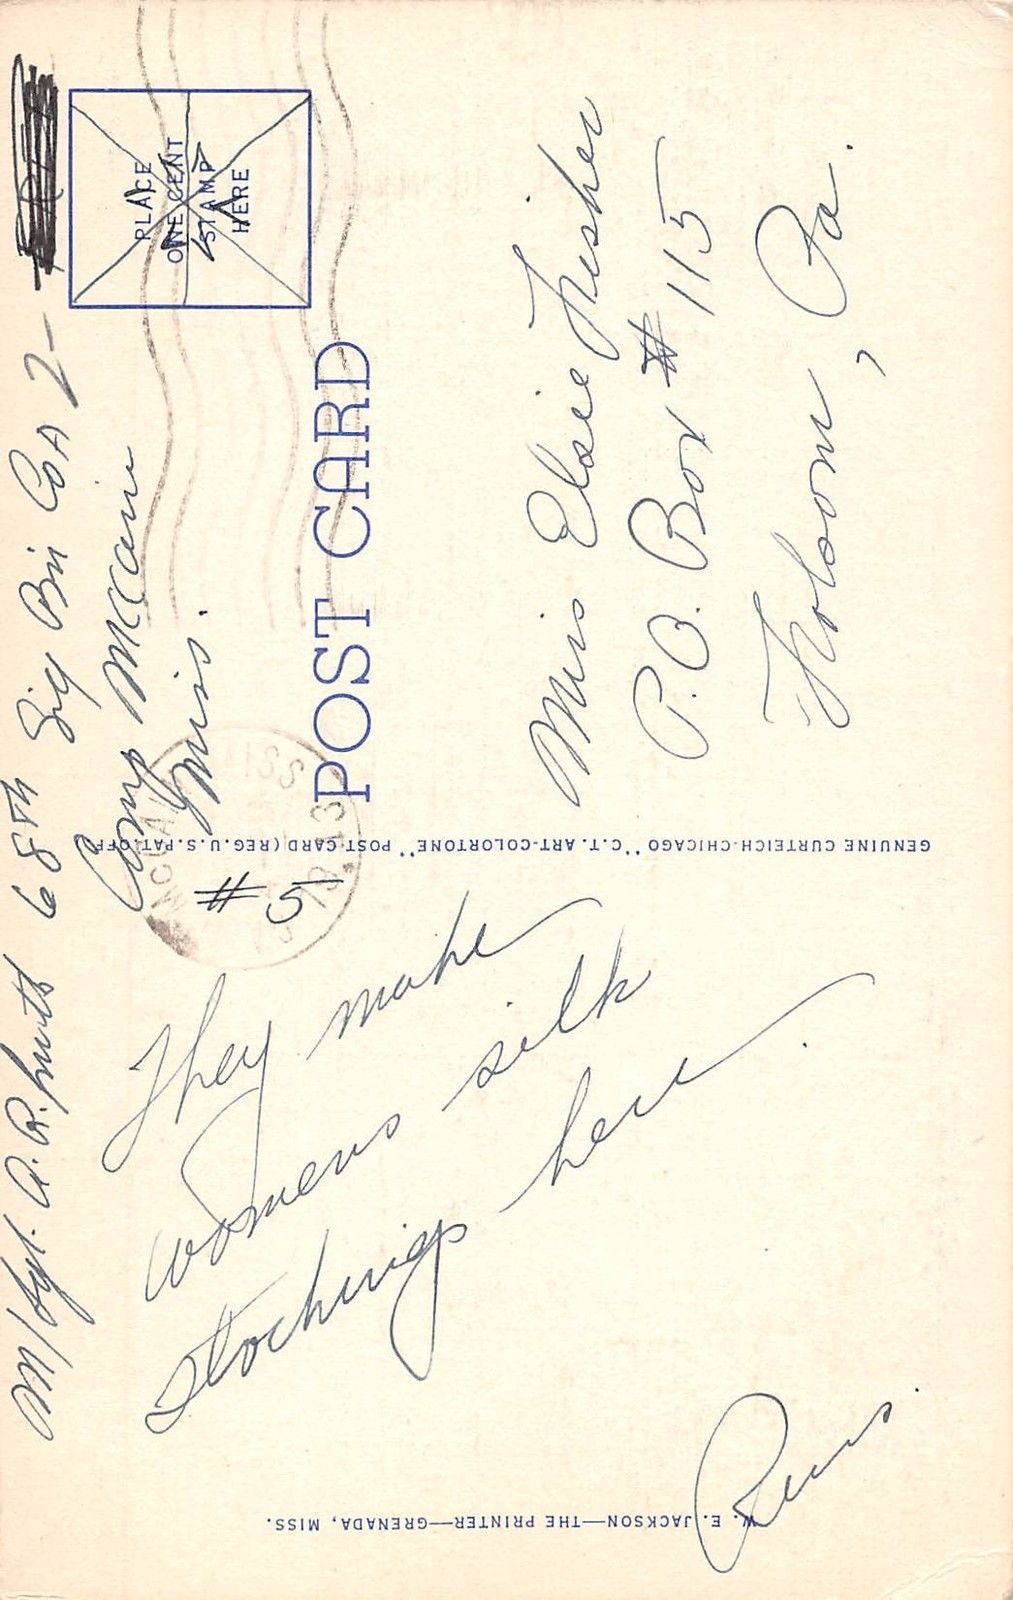 M/Sgt. A. R. Smith 68th Sig Bn Co A 2-
Camp McCain
Miss.
PLACE
ONE CENT
STAMP
HERE
POST CARD
MISS
1943
#5
They make
womens silk
stockings here.
Miss Elsie
P.O. Box #115
, Pa.
GENUINE CURTEICH-CHICAGO "C.T. ART-COLORTONE" POST CARD (REG. U.S. PAT. OFF.
W. E. JACKSON—THE PRINTER—GRENADA, MISS.